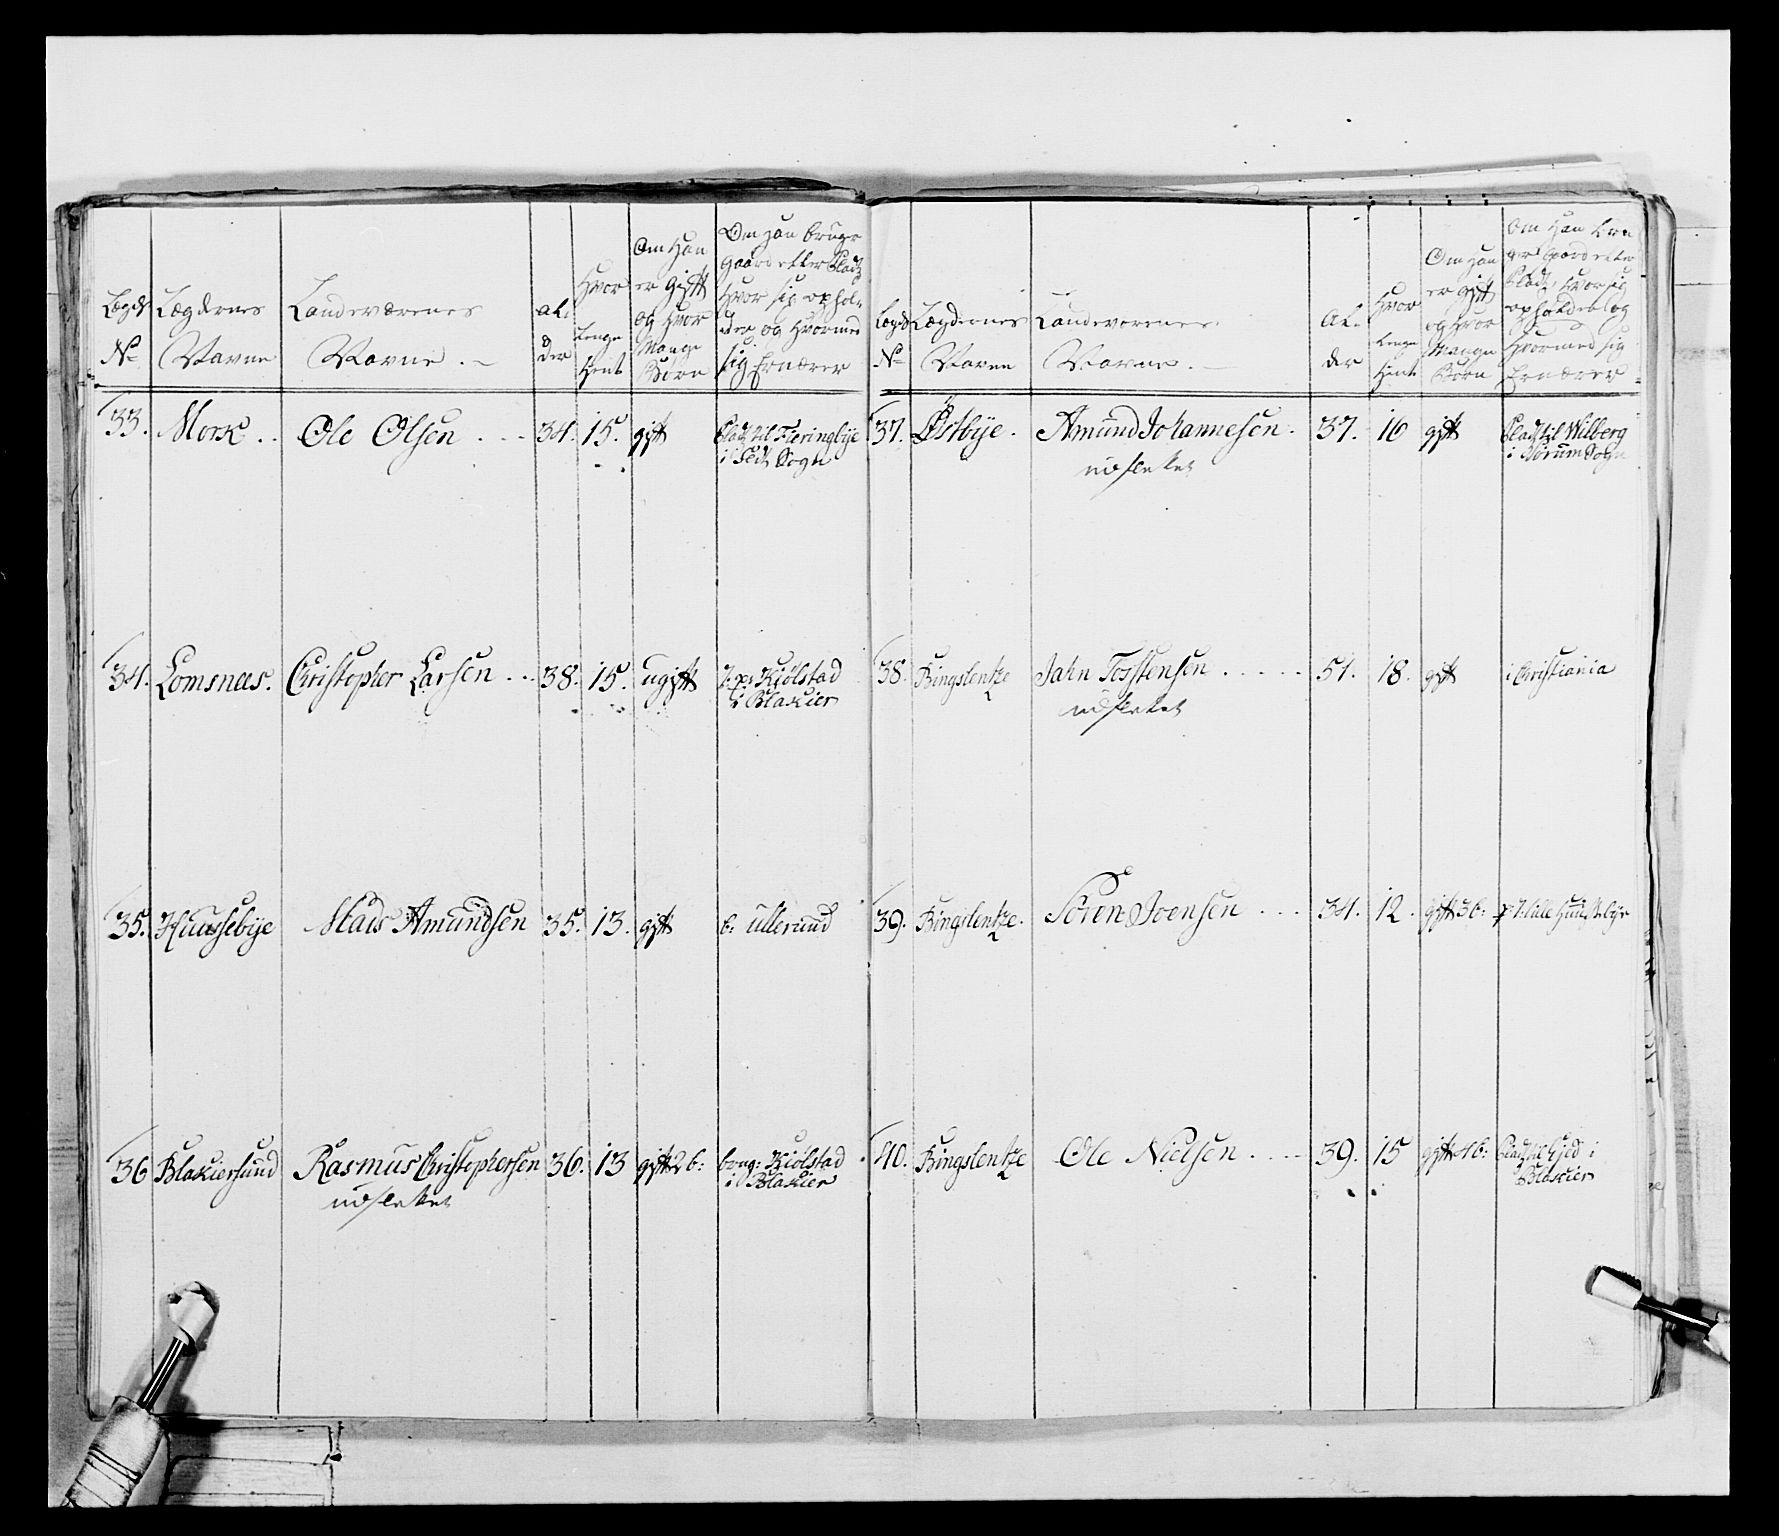 Lægds
No
Lægdernes
Navne
Landeværnes
Navne
Al-
der
Hvor
Lenge
tient
Om Han
er Gift
og Hvor
Mange
Børn
Om han bruger
Gaard eller Pladz
Hvor sig ophol-
der og Hvormed
sig Ernærer
33. Mork Ole Olsen 34. 15. gift Pladz til Fieringbye
i Fedt Sogn
34. Lomsnæs. Christopher Larsen 38. 15. ugift Kiølstad
i Blakier
35. Huusebye Mads Amundsen 35. 13. gift b: Ullerund
36 Blakiersund Rasmus Christophersen 36. 13 gift 2 b: brug: Kiølstad
udslettet i Blakier
Lægds
No
Lægdernes
Navne
Landeværnes
Navne
Al-
der
Hvor
Lenge
tient
Om Han
er gift
og Hvor
Mange
Børn
Om Han bru
ger Gaard eller
Pladz, Hvor sig
opholder og
Hvormed sig
Ernærer
37. Østbye. Amund Johannesen. 37. 16 gift Pladz til Wilberg
udslettet i Sørum Sogn
38. Bingslentze Jahn Tostensen 51. 18. gift i Christiania
udslettet
39. Bingslentze. Sören Joensen 34. 12. gift 3 b:
40. Bingslentze Ole Nielsen 39. 15 gift 4 b: Pladz til i
Blakier